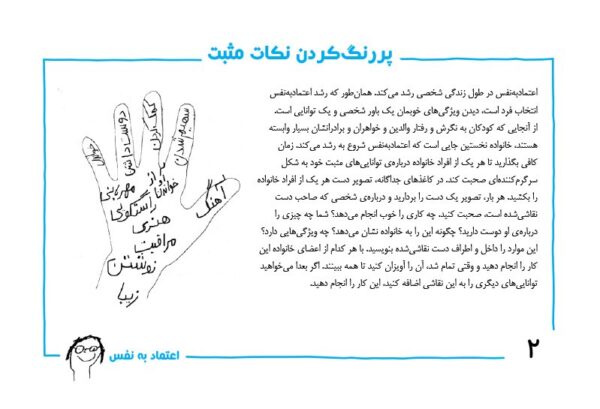 پررنگ‌کردن نکات مثبت
اعتمادبه‌نفس در طول زندگی شخصی رشد می‌کند. همان‌طور که رشد اعتمادبه‌نفس
انتخاب فرد است، دیدن ویژگی‌های خوبمان یک باور شخصی و یک توانایی است.
از آنجایی که کودکان به نگرش و رفتار والدین و خواهران و برادرانشان بسیار وابسته
هستند، خانواده نخستین جایی است که اعتمادبه‌نفس شروع به رشد می‌کند. زمان
کافی بگذارید تا هر یک از افراد خانواده درباره‌ی توانایی‌های مثبت خود به شکل
سرگرم‌کننده‌ای صحبت کند. در کاغذهای جداگانه، تصویر دست هر یک از افراد خانواده
را بکشید. هر بار، تصویر یک دست را بردارید و درباره‌ی شخصی که صاحب دست
نقاشی‌شده است، صحبت کنید. چه کاری را خوب انجام می‌دهد؟ شما چه چیزی را
درباره‌ی او دوست دارید؟ چگونه این را به خانواده نشان می‌دهد؟ چه ویژگی‌هایی دارد؟
این موارد را داخل و اطراف دست نقاشی‌شده بنویسید. با هر کدام از اعضای خانواده این
کار را انجام دهید و وقتی تمام شد، آن را آویزان کنید تا همه ببینند. اگر بعدا می‌خواهید
توانایی‌های دیگری را به این نقاشی اضافه کنید، این کار را انجام دهید.
سهیم شدن
کمک کردن
دوست داشتن
مهربانی
آواز خواندن
آهنگ
راستگویی
هنری
مراقبت
نوشتن
زیبا
۲
اعتماد به نفس